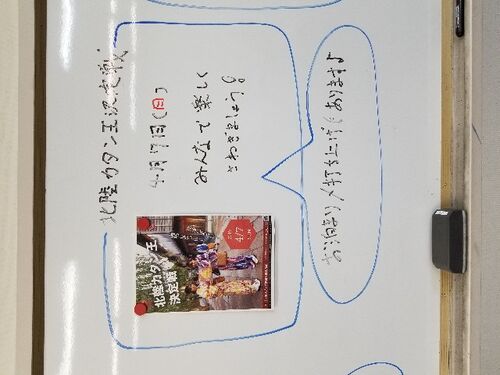 北陸カタン王決定戦
4月7日(日)
みんなで楽しく
さわぎましょう!
お泊まり/打ち上げもあります♪
北陸カタン王
決定戦
4/7